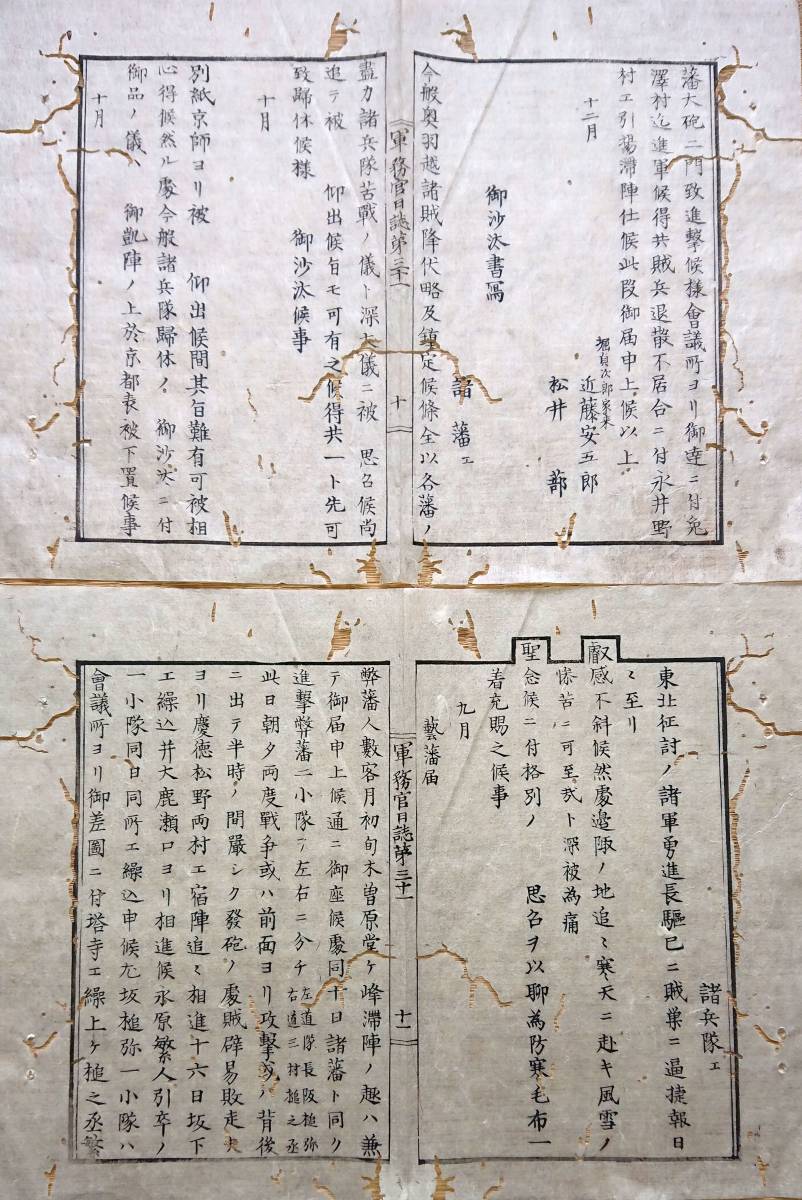 藩大砲二門致進撃候様會議所ヨリ御達ニ付兔
澤村迄進軍候得共賊兵退散不居合ニ付永井野
村エ引揚滞陣仕候此段御届申上候以上
十二月
堀貞次郎家来
近藤安五郎
松井
御沙汰書寫
諸藩エ
今般奥羽越諸賊降伏略及鎮定候條全以各藩ノ
軍務官日誌第三十一
十
盡力諸兵隊苦戰ノ儀ト深大儀ニ被 思召候尚
追テ被 仰出候旨モ可有之候得共一ト先可
致歸休候様 御沙汰候事
十月
別紙京師ヨリ被 仰出候間其旨難有可被相
心得候然ル處今般諸兵隊歸休ノ 御沙汰ニ付
御品ノ儀ハ 御凱陣ノ上於京都表被下置候事
十月
諸兵隊エ
東北征討ノ諸軍勇進長驅已ニ賊巣ニ逼捷報日
ミ至リ
叡感不斜候然處邉陬ノ地追ミ寒天ニ赴キ風雪ノ
惨苦ニ可至哉ト深被為痛
聖念候ニ付格別ノ 思召ヲ以聊為防寒毛布一
着充賜之候事
九月
藝藩届
軍務官日誌第三十一
十一
弊藩人數客月初旬木曽原堂ケ峰滞陣ノ趣ハ兼
テ御届申上候通ニ御座候處同十日諸藩ト同ク
進撃弊藩二小隊ヲ左右ニ分チ 左道隊長阪槌弥
右道三村槌之丞
此日朝夕両度戰争或ハ前面ヨリ攻撃或ハ背後
ニ出テ半時ノ間嚴シク發砲ノ處賊辟易敗走夫
ヨリ慶徳松野両村エ宿陣追ミ相進十六日坂下
エ繰込井大鹿瀬口ヨリ相進候永原繁人引卒ノ
一小隊同日同所エ繰込申候尤坂槌弥一小隊ハ
會議所ヨリ御差圖ニ付塔寺エ繰上ケ槌之丞繁